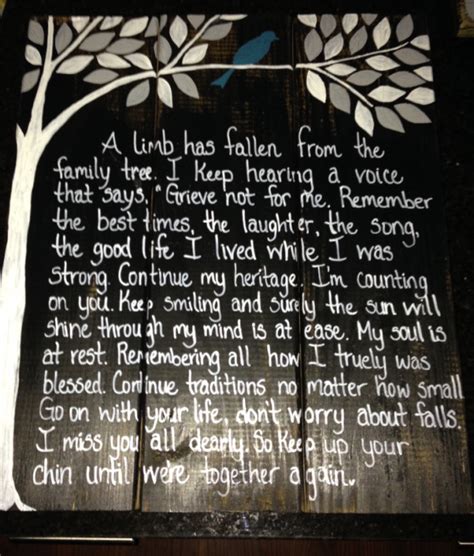 A limb has fallen from the
family tree. I keep hearing a voice
that says, "Grieve not for me. Remember
the best times, the laughter, the song,
the good life I lived while I was
strong. Continue my heritage, I'm counting
on you. Keep smiling and surely the sun will
shine through my mind is at ease. My soul is
at rest. Remembering all how I truely was
blessed. Continue traditions no matter how small
Go on with your life, don't worry about falls.
I miss you all dearly. So keep up your
chin until were together again.